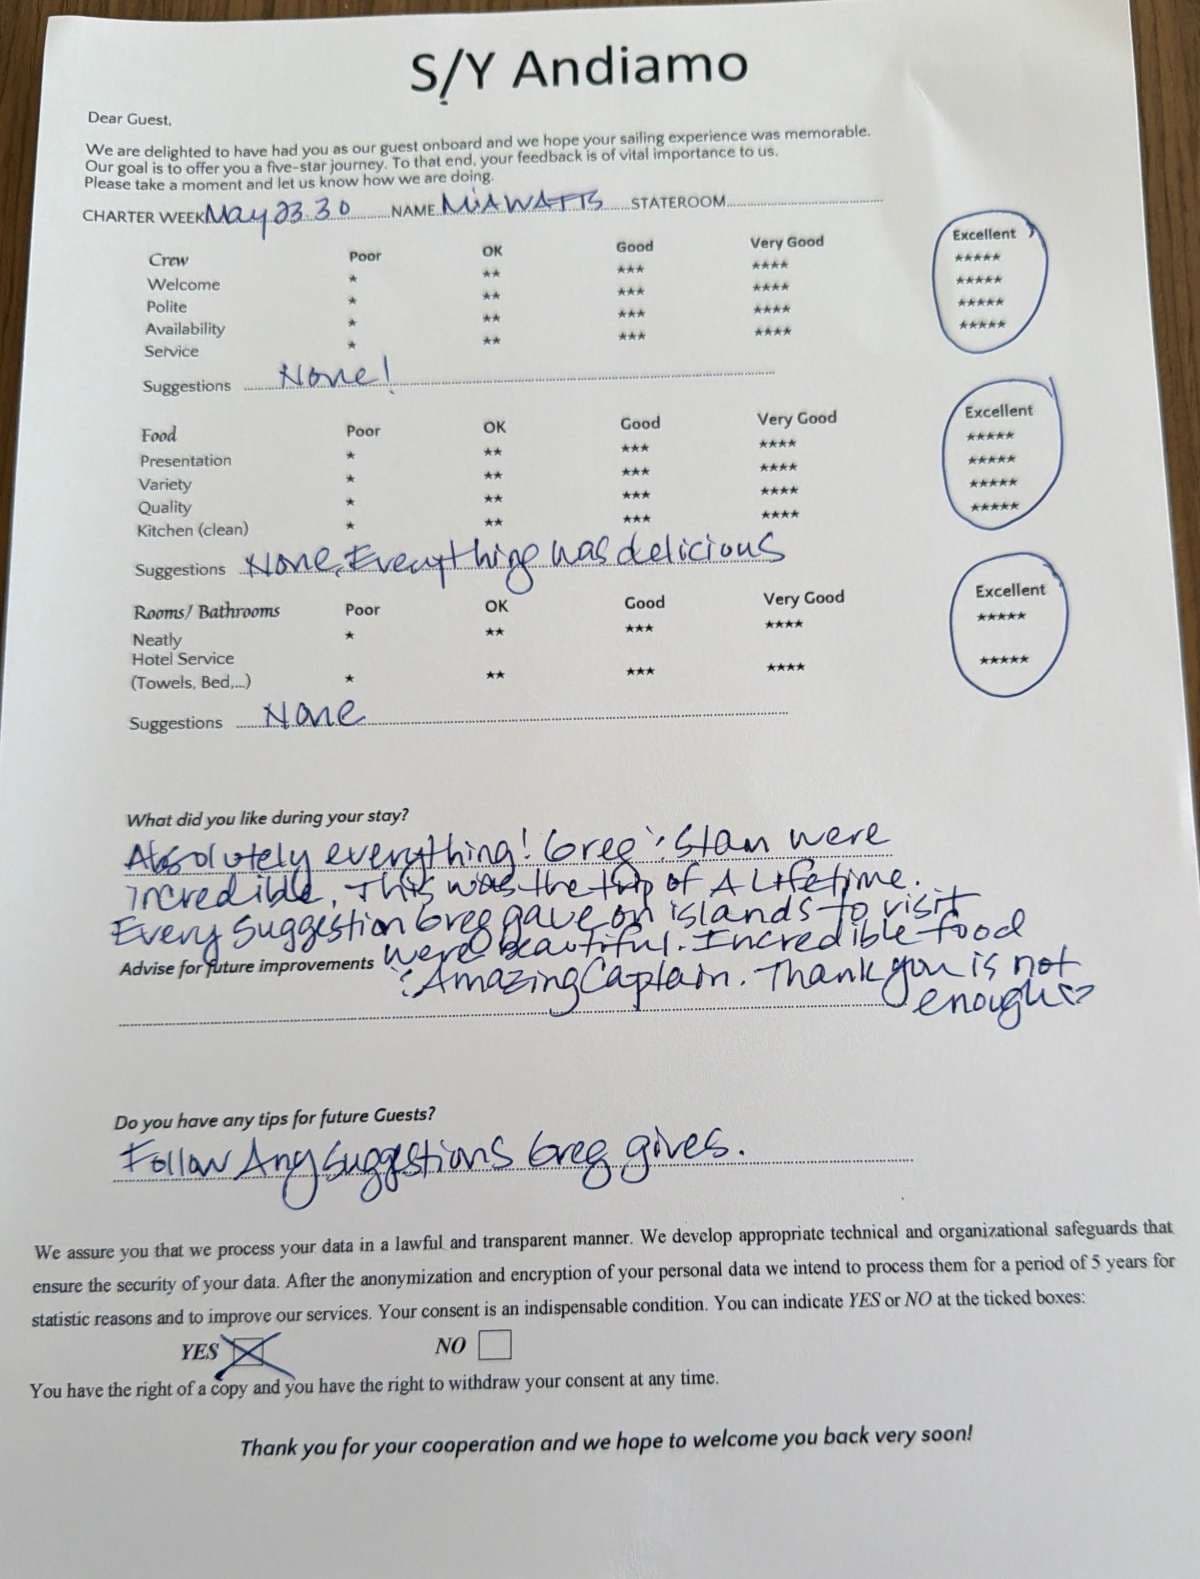 S/Y Andiamo
Dear Guest,
We are delighted to have had you as our guest onboard and we hope your sailing experience was memorable.
Our goal is to offer you a five-star journey. To that end, your feedback is of vital importance to us.
Please take a moment and let us know how we are doing.
CHARTER WEEK May 23.30 NAME MIA WATTS STATEROOM
Crew Poor OK Good Very Good Excellent
Welcome * ** *** **** *****
Polite * ** *** **** *****
Availability * ** *** **** *****
Service * ** *** **** *****
Suggestions None!
Food Poor OK Good Very Good Excellent
Presentation * ** *** **** *****
Variety * ** *** **** *****
Quality * ** *** **** *****
Kitchen (clean) * ** *** **** *****
Suggestions None, Everything was delicious
Rooms/ Bathrooms Poor OK Good Very Good Excellent
Neatly * ** *** **** *****
Hotel Service
(Towels, Bed,...) * ** *** **** *****
Suggestions None
What did you like during your stay?
Absolutely everything! Greg & Stam were
incredible, This was the trip of A Lifetime.
Every suggestion Greg gave on islands to visit
were beautiful. Incredible food
Advise for future improvements
& Amazing Captain. Thank you is not
enough ♡
Do you have any tips for future Guests?
Follow Any suggestions Greg gives.
We assure you that we process your data in a lawful and transparent manner. We develop appropriate technical and organizational safeguards that
ensure the security of your data. After the anonymization and encryption of your personal data we intend to process them for a period of 5 years for
statistic reasons and to improve our services. Your consent is an indispensable condition. You can indicate YES or NO at the ticked boxes:
YES NO
You have the right of a copy and you have the right to withdraw your consent at any time.
Thank you for your cooperation and we hope to welcome you back very soon!